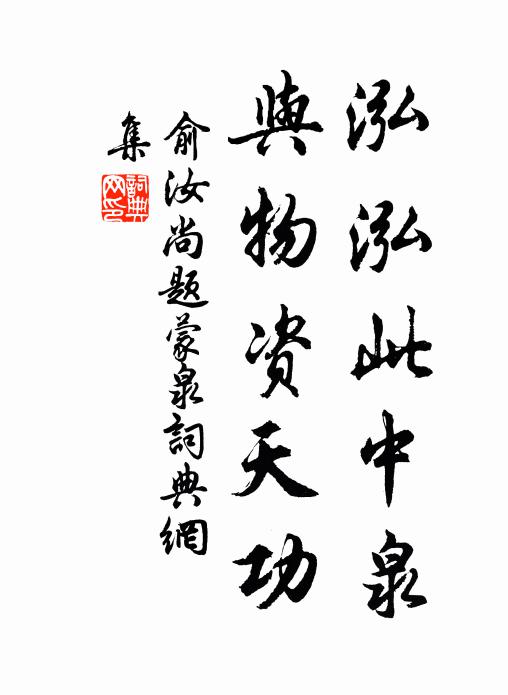 泓泓此中泉
與物资天功
俞汝尚题蒙泉詞典網
集
詞典
网印